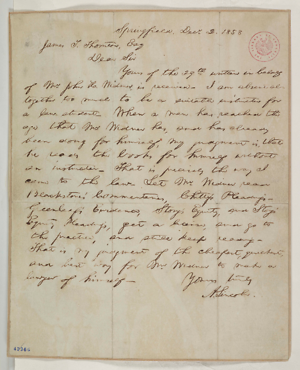 Springfield, Dec. 2. 1858
James T. Thornton, Esq
Dear Sir
Yours of the 29th written in behalf
of Mr. John H. Widmer is received. I am absent
altogether too much to be a suitable instructer for
a law student. When a man has reached the
age that Mr. Widmer has, and has already
been doing for himself, my judgment is, that
he reads the books for himself without
an instructer. That is precisely the way I
came to the law. Let Mr. Widmer read
Blackstone's Commentaries, Chitty's Pleadings
Greenleaf's Evidence, Story's Equity, and Story's
Equity Pleadings, get a license, and go to
the practice, and still keep reading.
That is my judgment of the cheapest, quickest,
and best way for Mr. Widmer to make a
lawyer of himself.
Yours truly
A. Lincoln.